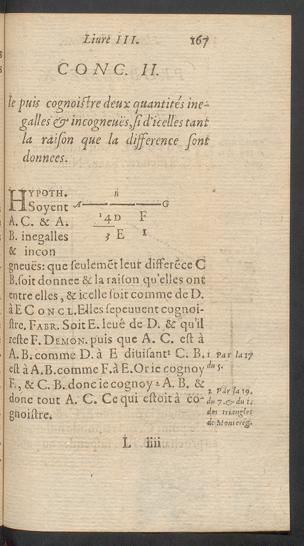 Liure III. 167
CONC. II.
Ie puis cognoistre deux quantités ine-
galles & incogneuës, si d'icelles tant
la raison que la difference sont
donnees.
HYPOTH.
Soyent
A. C. & A.
B. inegalles
& incon
B
A G
14D F
3 E 1
gneuës: que seulemēt leur differēce C
B. soit donnee & la raison qu'elles ont
entre elles, & icelle soit comme de D.
à E CONCL. Elles se peuuent cognoi-
stre. FABR. Soit E. leué de D. & qu'il
reste F. DEMON. puis que A. C. est à
A. B. comme D. à E diuisant¹ C. B.
est à A. B. comme F. à E. Or ie cognoy
F., & C. B. donc ie cognoy ² A. B, &
donc tout A. C. Ce qui estoit à co-
gnoistre.
1 Par la 17
du 5.
2 Par la 19.
du 7. & du 1.
des triangles
de Montereg.
L iiii